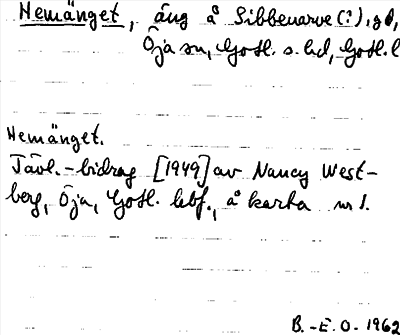 Hemänget, äng å Sibbenarve (?), gd,
Öja sn, Gotl. s. hd, Gotl. l
Hemänget.
Tävl.-bidrag [1949] av Nancy West-
berg, Öja, Gotl. lbf., å karta nr 1.
B.-E. O. 1962